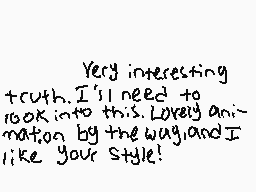 Very interesting
truth. I'll need to
look into this. Lovely ani-
mation by the way, and I
like your style!